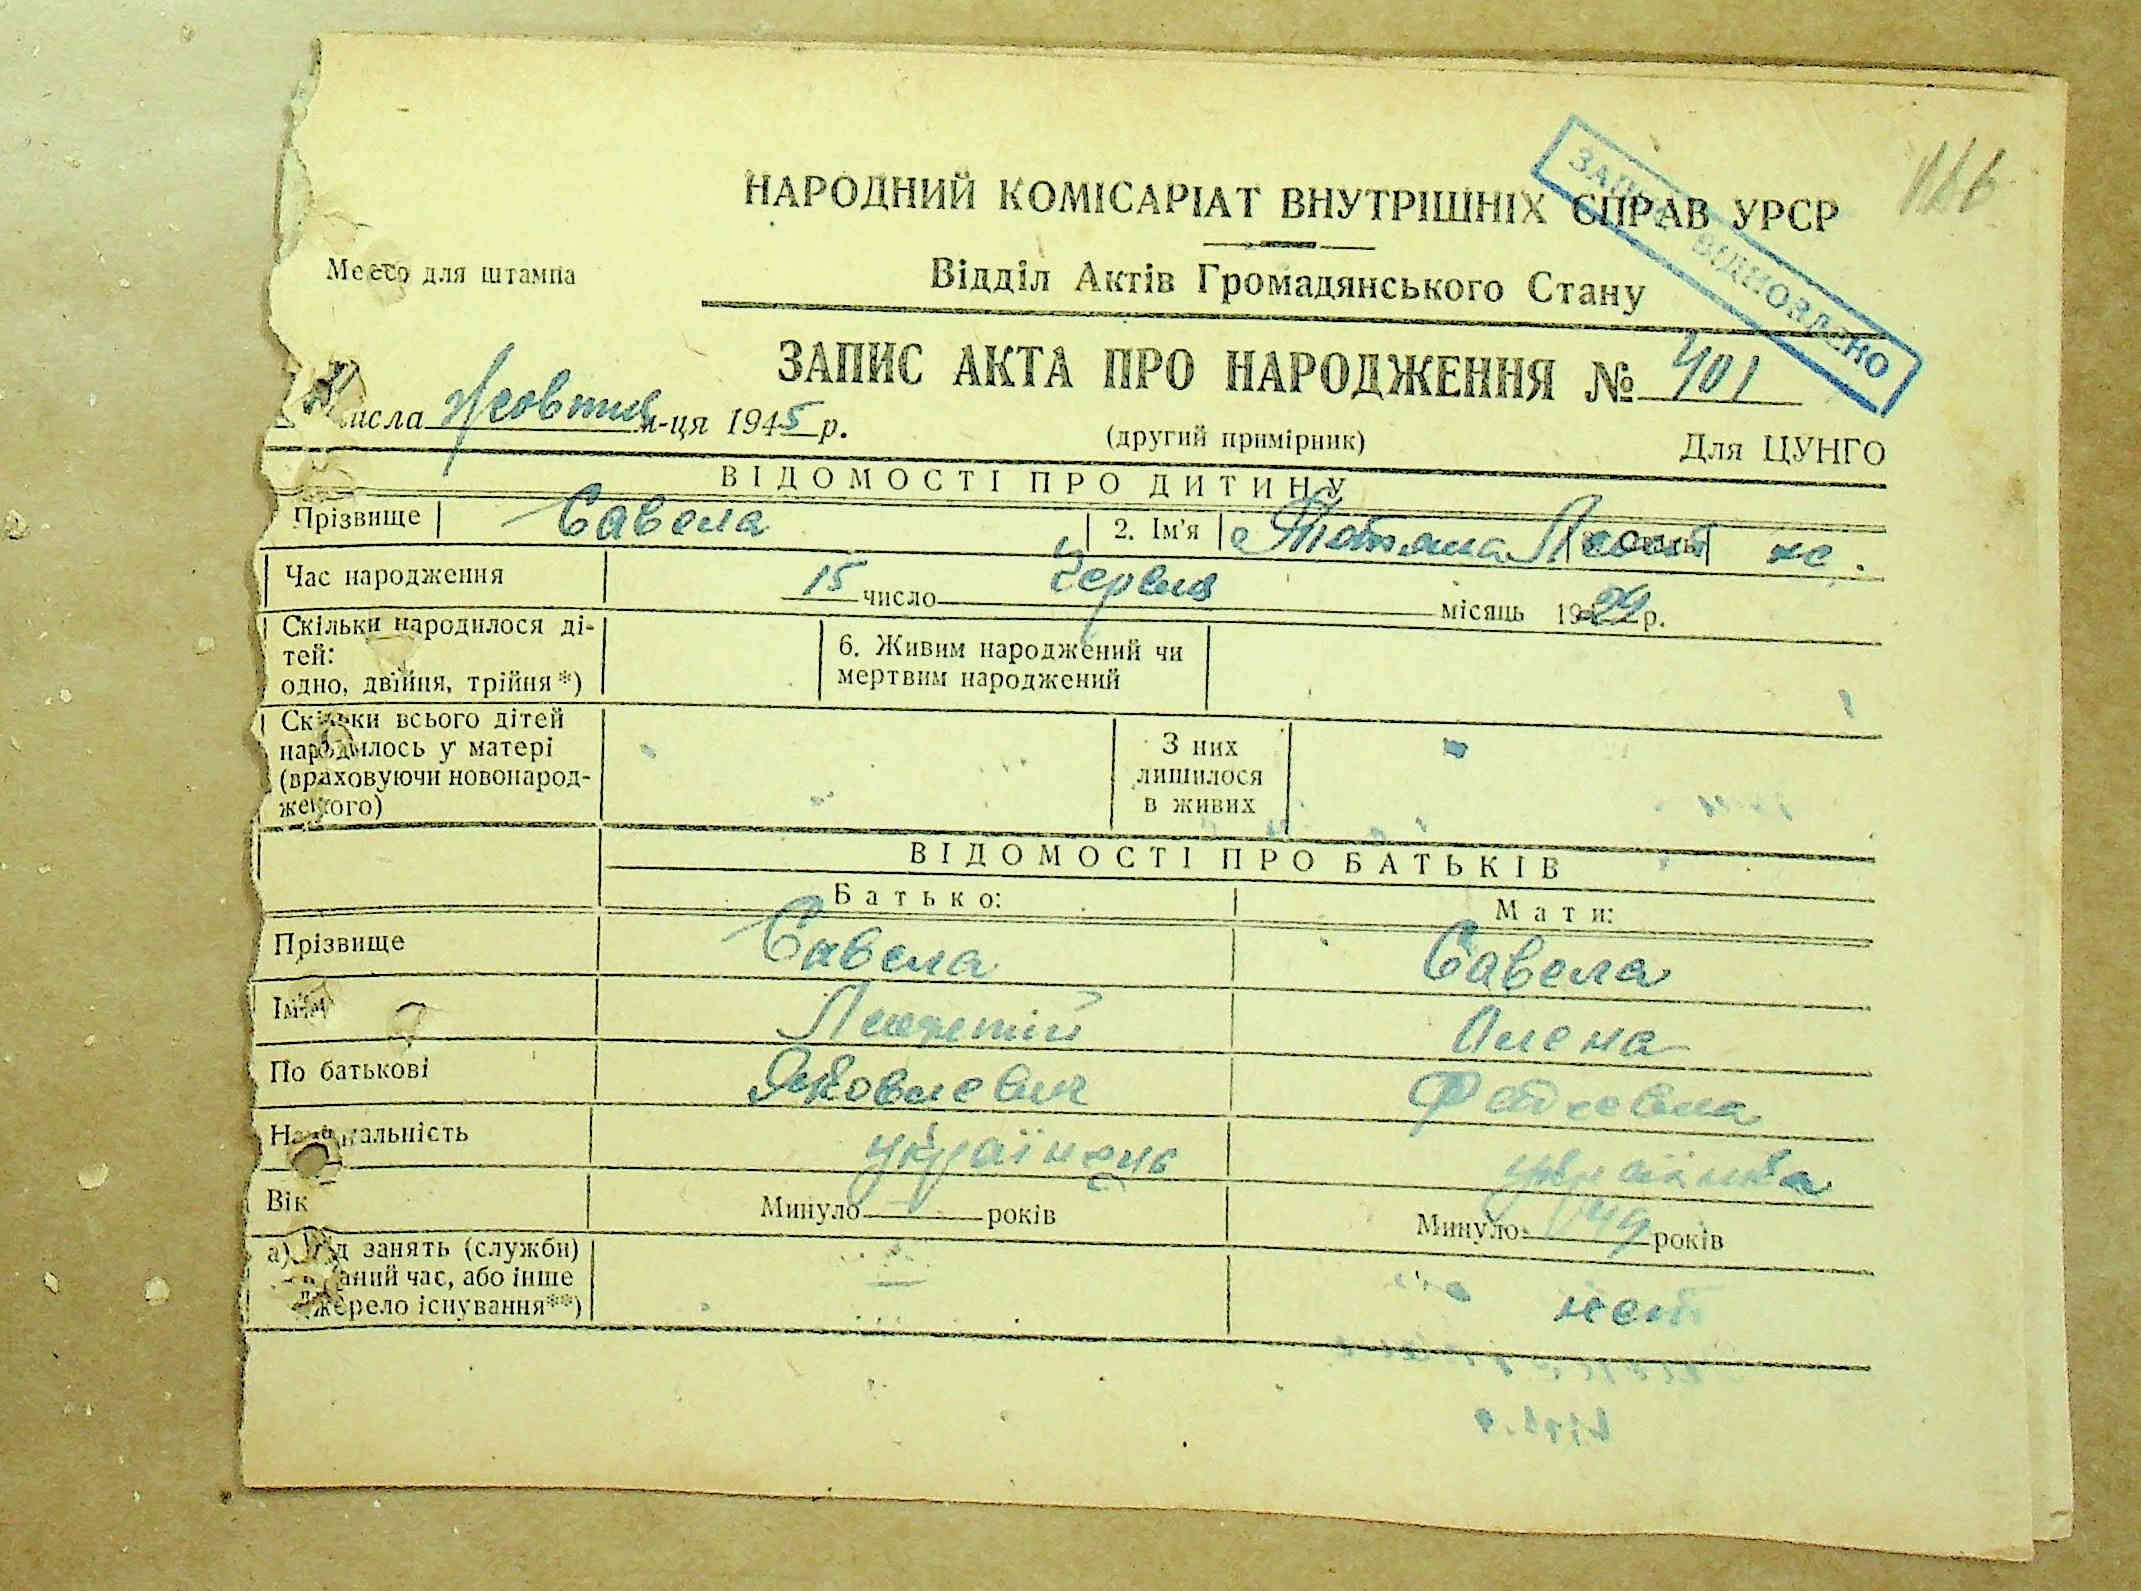 166
ЗАПИС ВІДНОВЛЕНО
НАРОДНИЙ КОМІСАРІАТ ВНУТРІШНІХ СПРАВ УРСР
Место для штампа
Відділ Актів Громадянського Стану
ЗАПИС АКТА ПРО НАРОДЖЕННЯ № 401
числа жовтня м-ця 1945 р.
(другий примірник)
Для ЦУНГО
ВІДОМОСТІ ПРО ДИТИНУ
Прізвище Савела 2. Ім'я Тетяна
Час народження 15 число червня місяць 1924 р.
Скільки народилося ді-
тей:
одно, двійня, трійня*)
6. Живим народжений чи
мертвим народжений
Скільки всього дітей
народилось у матері
(враховуючи новонарод-
женого)
З них
лишилося
в живих
ВІДОМОСТІ ПРО БАТЬКІВ
Батько: Мати:
Прізвище Савела Савела
Ім'я Олена
По батькові Яковлевич
Національність українець українка
Вік Минуло — років Минуло 49 років
а) Рід занять (служби)
в даний час, або інше
джерело існування**)